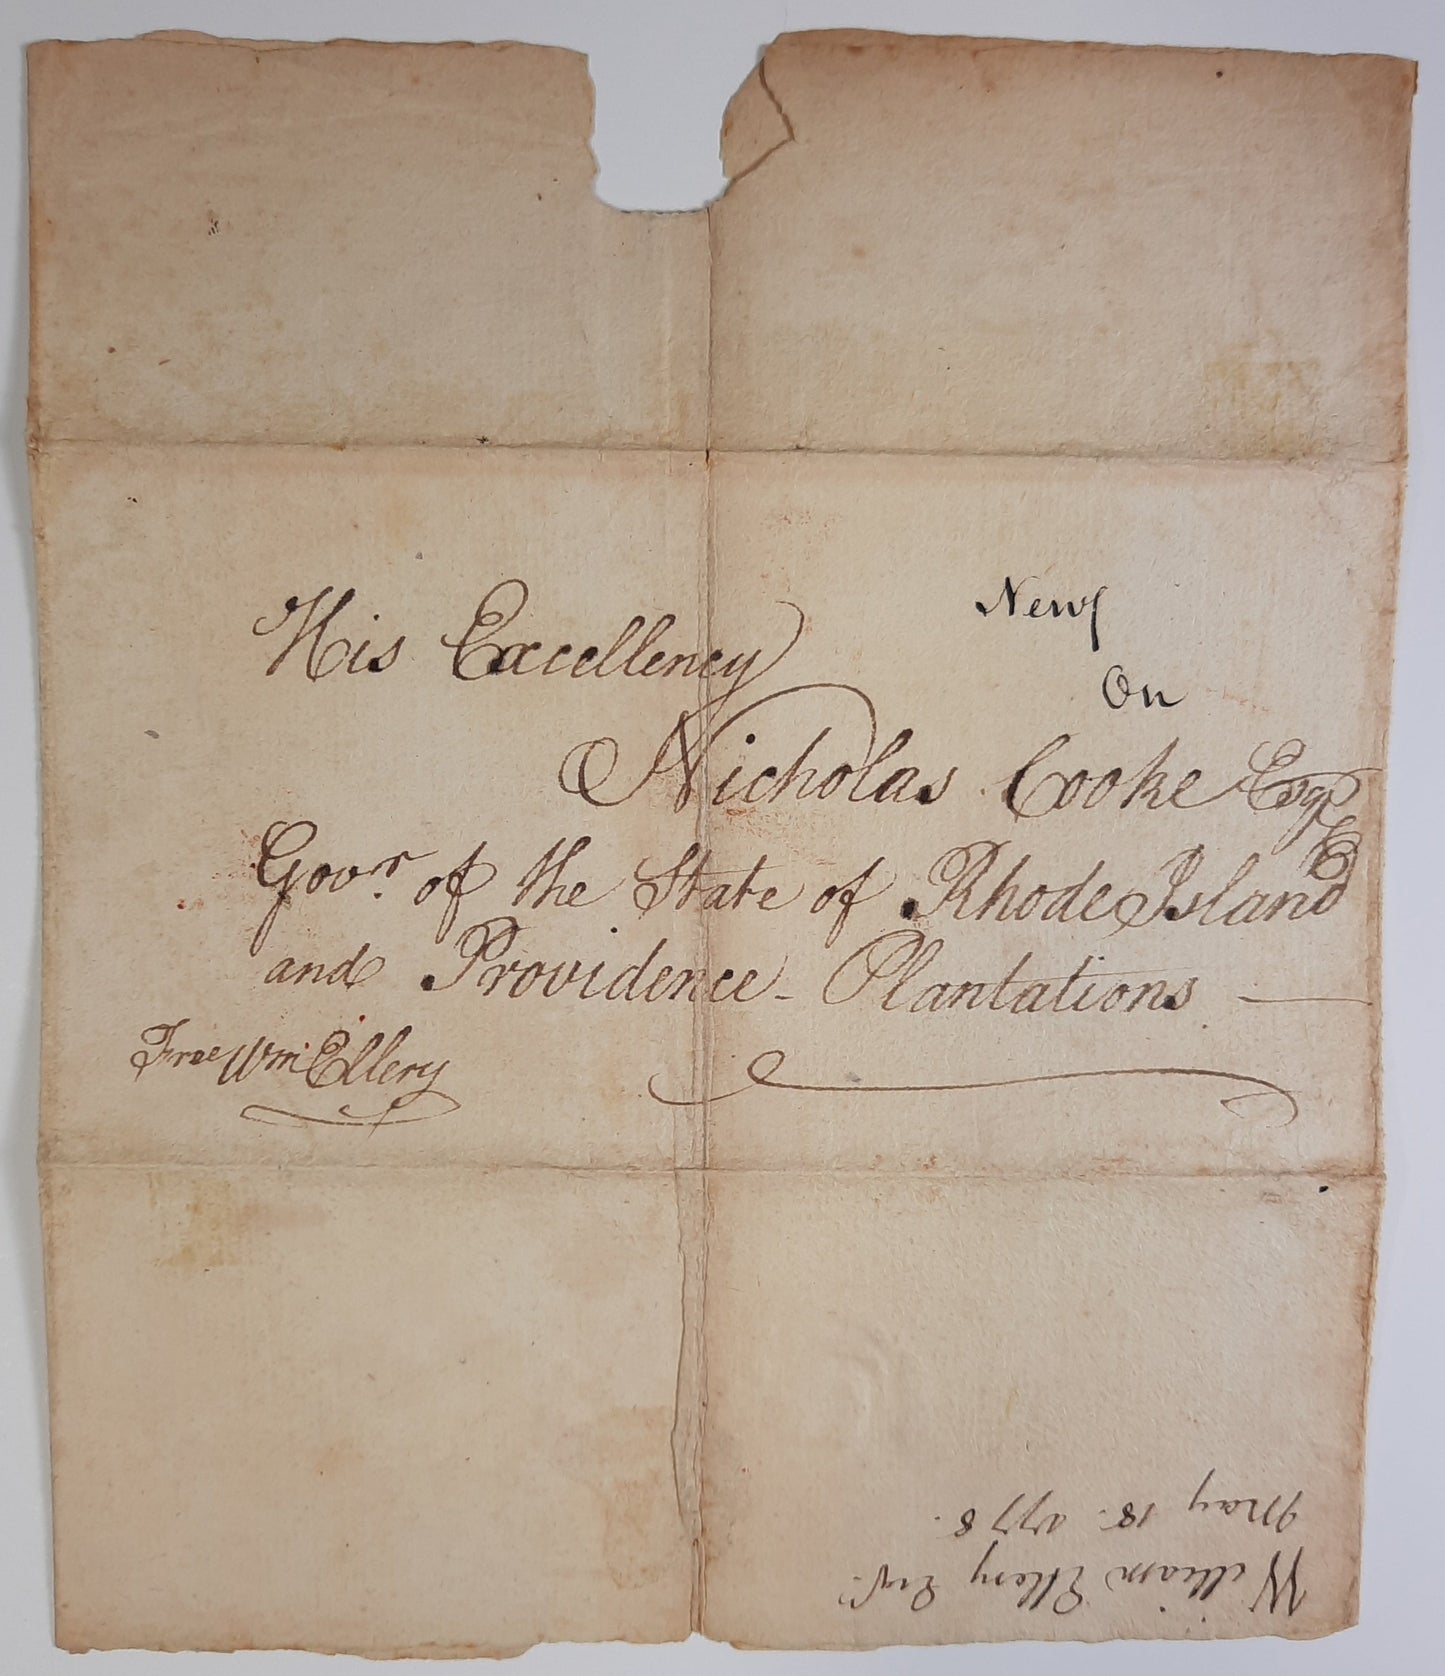 His Excellency
New
On
Nicholas Cooke Esqr
Govr. of the State of Rhode Island
and Providence-Plantations
Free Wm. Ellery
William Ellery Esqr.
May 18. 1778.